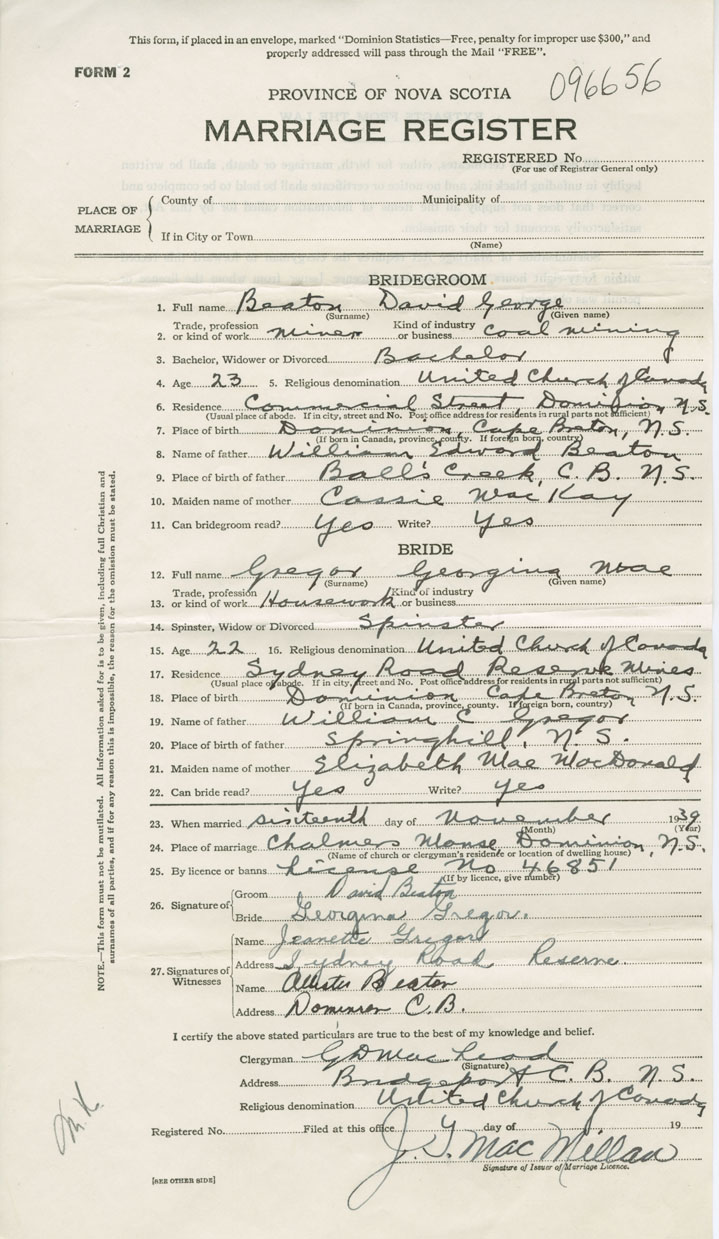 This form, if placed in an envelope, marked "Dominion Statistics—Free, penalty for improper use $300," and
properly addressed will pass through the Mail "FREE".
FORM 2
096656
PROVINCE OF NOVA SCOTIA
MARRIAGE REGISTER
REGISTERED No.
(For use of Registrar General only)
PLACE OF MARRIAGE
County of Municipality of
If in City or Town
(Name)
BRIDEGROOM
1. Full name Beaton David George
(Surname) (Given name)
2. Trade, profession or kind of work miner Kind of industry or business coal mining
3. Bachelor, Widower or Divorced Bachelor
4. Age 23 5. Religious denomination United Church of Canada
6. Residence Commercial Street Dominion N.S.
(Usual place of abode. If in city, street and No. Post office address for residents in rural parts not sufficient)
7. Place of birth Dominion, Cape Breton, N.S.
(If born in Canada, province, county. If foreign born, country)
8. Name of father William Edward Beaton
9. Place of birth of father Ball's Creek, C.B. N.S.
10. Maiden name of mother Cassie MacKay
11. Can bridegroom read? Yes Write? Yes
BRIDE
12. Full name Gregor Georgina Mae
(Surname) (Given name)
13. Trade, profession or kind of work Housework Kind of industry or business
14. Spinster, Widow or Divorced Spinster
15. Age 22 16. Religious denomination United Church of Canada
17. Residence Sydney Road Reserve Mines
(Usual place of abode. If in city, street and No. Post office address for residents in rural parts not sufficient)
18. Place of birth Dominion Cape Breton N.S.
(If born in Canada, province, county. If foreign born, country)
19. Name of father William C Gregor
20. Place of birth of father Springhill, N.S.
21. Maiden name of mother Elizabeth Mae MacDonald
22. Can bride read? Yes Write? Yes
23. When married sixteenth day of November 1939
(Month) (Year)
24. Place of marriage Chalmers Manse Dominion, N.S.
(Name of church or clergyman's residence or location of dwelling house)
25. By licence or banns License No 46851
(If by licence, give number)
26. Signature of
Groom David Beaton
Bride Georgina Gregor.
27. Signatures of Witnesses
Name Jeanette Gregor
Address Sydney Road Reserve.
Name Allister Beaton
Address Dominion C.B.
I certify the above stated particulars are true to the best of my knowledge and belief.
Clergyman G D MacLeod
(Signature)
Address Bridgeport C.B. N.S.
Religious denomination United Church of Canada
Registered No. Filed at this office day of 19
J. Y. MacMillan
Signature of Issuer of Marriage Licence.
[SEE OTHER SIDE]
NOTE.—This form must not be mutilated. All information asked for is to be given, including full Christian and
surnames of all parties, and if for any reason this is impossible, the reason for the omission must be stated.